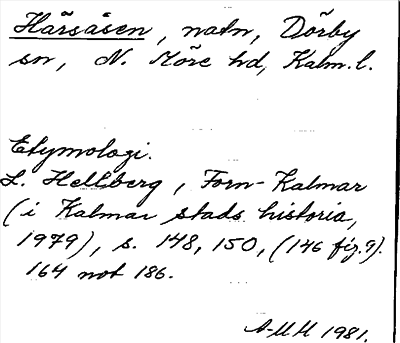 Hårsåsen, natn, Dörby
sn, N. Möre hd, Kalm. l.
Etymologi.
L. Hellberg, Forn-Kalmar
(i Kalmar stads historia,
1979), s. 148, 150, (146 fig. 9).
164 not 186.
A-MH 1981.